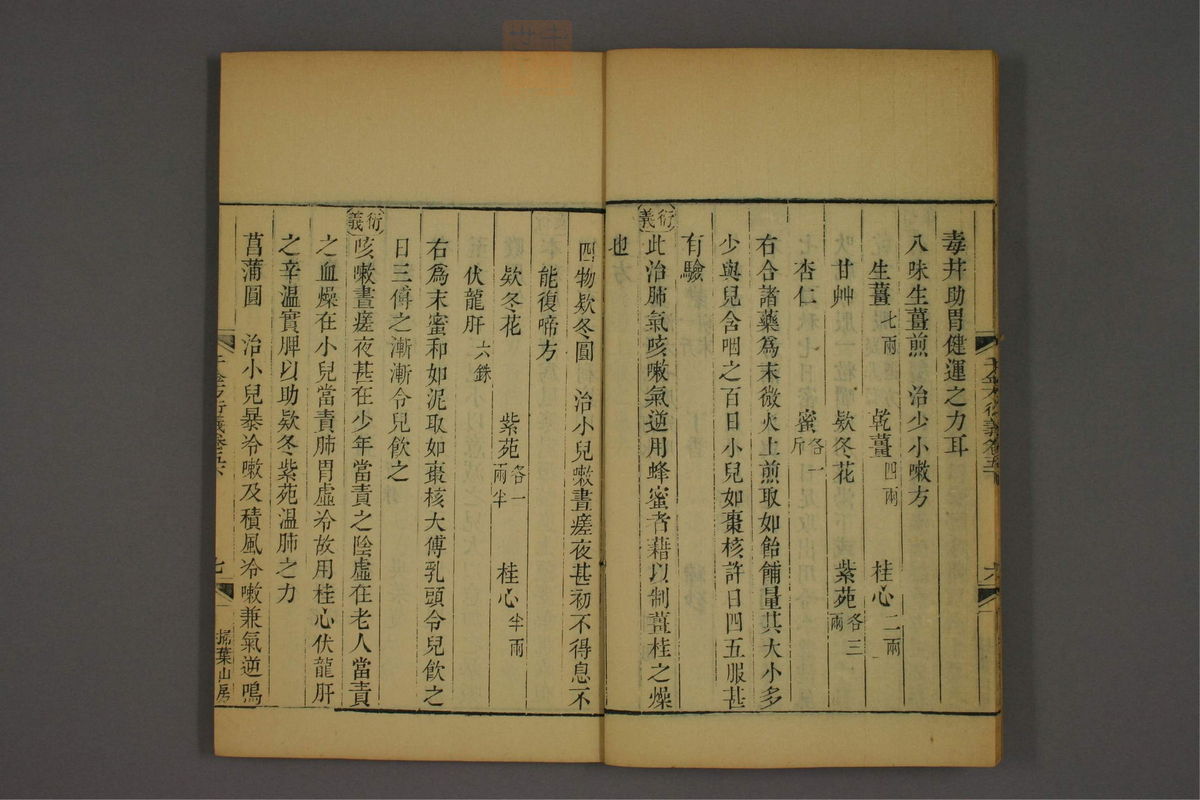 毒并助胃健運之力耳
八味生薑煎 治少小嗽方
生薑七兩 乾薑四兩 桂心二兩
甘艸 欵冬花 紫苑各三兩
杏仁 蜜各一斤
右合諸藥爲末微火上煎取如飴餔量其大小多
少與兒含咽之百日小兒如棗核許日四五服甚
有驗
衍義此治肺氣咳嗽氣逆用蜂蜜者藉以制薑桂之燥
也
四物欵冬圓 治小兒嗽晝瘥夜甚初不得息不
能復啼方
欵冬花 紫苑各一兩半 桂心半兩
伏龍肝六銖
右爲末蜜和如泥取如棗核大傅乳頭令兒飲之
日三傅之漸漸令兒飲之
衍義咳嗽晝瘥夜甚在少年當責之陰虛在老人當責
之血燥在小兒當責肺胃虛冷故用桂心伏龍肝
之辛温實脾以助欵冬紫苑温肺之力
菖蒲圓 治小兒暴冷嗽及積風冷嗽兼氣逆鳴
七
掃葉山房